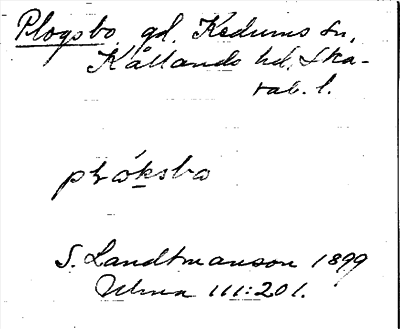 Plogsbo, gd, Kedums sn,
Kållands hd, Ska-
rab. l.
plóksbo
S. Landtmanson 1899
Utma 111:201.